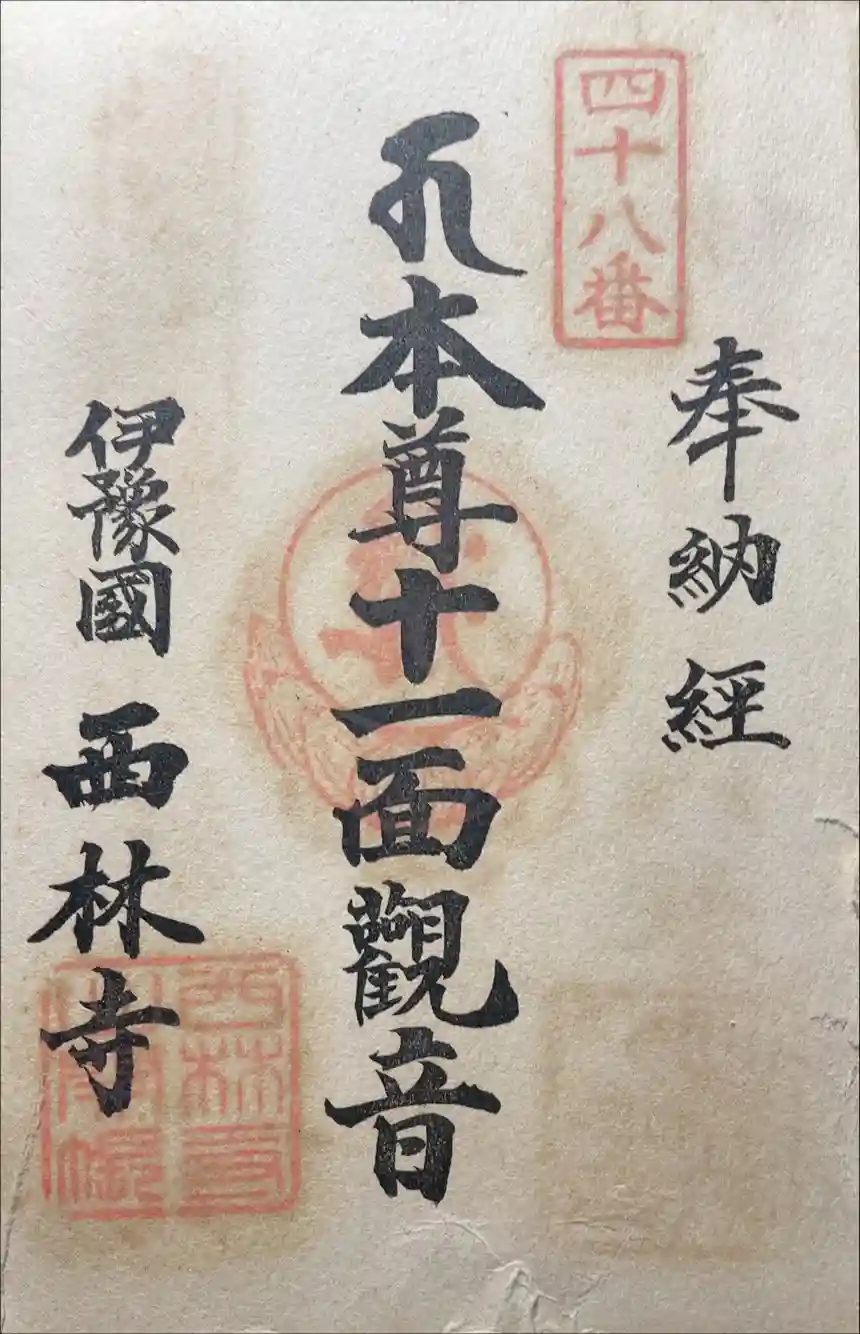 四十八番
奉納經
本尊十一面觀音
伊豫國 西林寺
西林寺